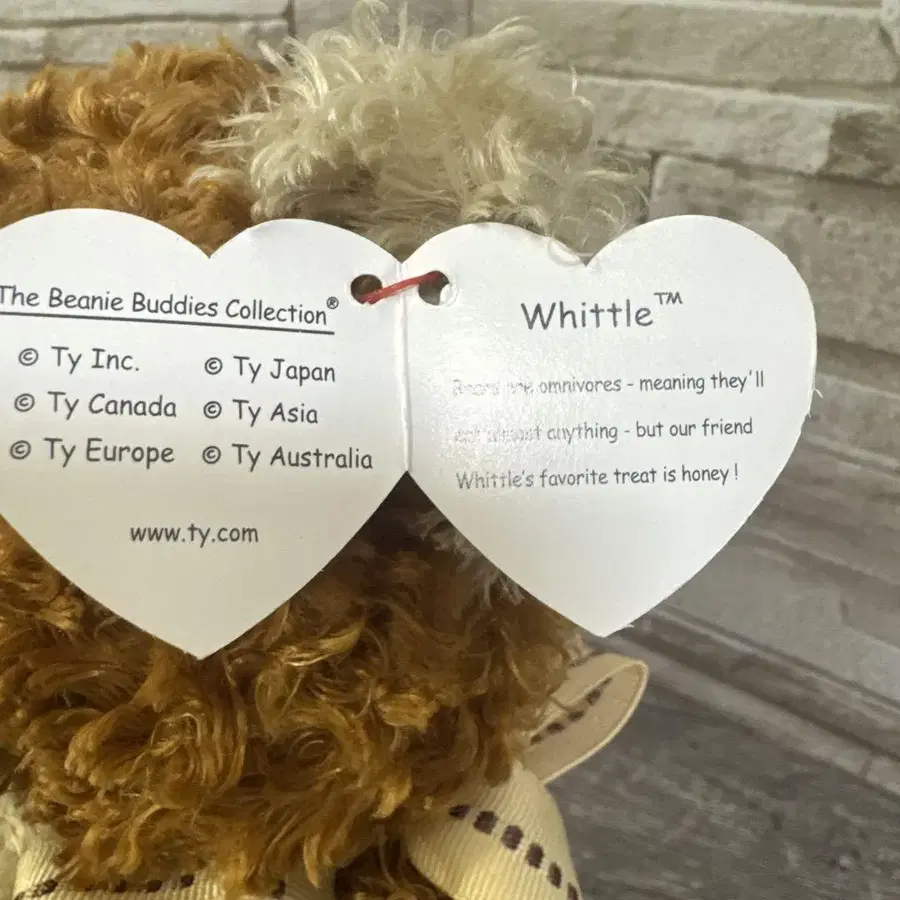 The Beanie Buddies Collection®
© Ty Inc. © Ty Japan
© Ty Canada © Ty Asia
© Ty Europe © Ty Australia
www.ty.com
Whittle™
Bears are omnivores - meaning they'll
eat almost anything - but our friend
Whittle's favorite treat is honey!